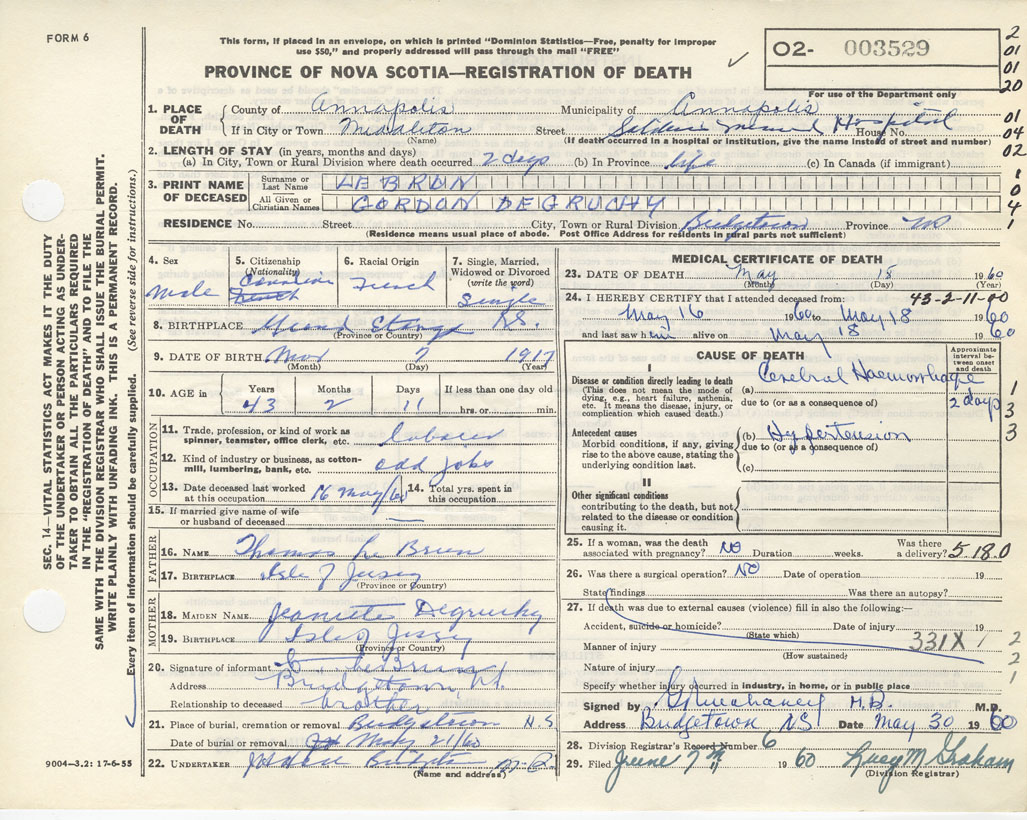 FORM 6
This form, if placed in an envelope, on which is printed "Dominion Statistics—Free, penalty for improper
use $50," and properly addressed will pass through the mail "FREE"
PROVINCE OF NOVA SCOTIA—REGISTRATION OF DEATH
O2- 003529
For use of the Department only
2
01
01
20
01
04
02
1
0
4
1
SEC. 14—VITAL STATISTICS ACT MAKES IT THE DUTY
OF THE UNDERTAKER OR PERSON ACTING AS UNDER-
TAKER TO OBTAIN ALL THE PARTICULARS REQUIRED
IN THE "REGISTRATION OF DEATH" AND TO FILE THE
SAME WITH THE DIVISION REGISTRAR WHO SHALL ISSUE THE BURIAL PERMIT.
WRITE PLAINLY WITH UNFADING INK. THIS IS A PERMANENT RECORD.
Every item of information should be carefully supplied. (See reverse side for instructions.)
1. PLACE OF DEATH
County of Annapolis Municipality of Annapolis
If in City or Town Middleton Street Soldiers Memorial Hospital House No.
(Name) (If death occurred in a hospital or institution, give the name instead of street and number)
2. LENGTH OF STAY (in years, months and days)
(a) In City, Town or Rural Division where death occurred 2 days (b) In Province life (c) In Canada (if immigrant)
3. PRINT NAME OF DECEASED
Surname or Last Name LE BRUN
All Given or Christian Names GORDON DEGRUCHY
RESIDENCE No. Street City, Town or Rural Division Bridgetown Province NS
(Residence means usual place of abode. Post Office Address for residents in rural parts not sufficient)
4. Sex Male
5. Citizenship (Nationality) Canadian French
6. Racial Origin French
7. Single, Married, Widowed or Divorced (write the word) Single
8. BIRTHPLACE Grand Etang N.S.
(Province or Country)
9. DATE OF BIRTH Mar 7 1917
(Month) (Day) (Year)
10. AGE in Years 43 Months 2 Days 11 If less than one day old hrs. or min.
OCCUPATION
11. Trade, profession, or kind of work as spinner, teamster, office clerk, etc. laborer
12. Kind of industry or business, as cotton-mill, lumbering, bank, etc. odd jobs
13. Date deceased last worked at this occupation 16 May/60 14. Total yrs. spent in this occupation
15. If married give name of wife or husband of deceased —
FATHER
16. NAME Thomas Le Brun
17. BIRTHPLACE Isle of Jersey
(Province or Country)
MOTHER
18. MAIDEN NAME Jeanette Degruchy
19. BIRTHPLACE Isle of Jersey
(Province or Country)
20. Signature of informant LeBrun
Address Bridgetown, NS
Relationship to deceased brother
21. Place of burial, cremation or removal Bridgetown N.S.
Date of burial or removal May 21/60
22. UNDERTAKER
(Name and address)
9004—3.2: 17-6-55
MEDICAL CERTIFICATE OF DEATH
23. DATE OF DEATH May 18 1960
(Month) (Day) (Year)
24. I HEREBY CERTIFY that I attended deceased from: 43-2-11-00
May 16 1960 to May 18 1960
and last saw him alive on May 18 1960
CAUSE OF DEATH
Approximate interval between onset and death
I
Disease or condition directly leading to death
(This does not mean the mode of dying, e.g., heart failure, asthenia, etc. It means the disease, injury, or complication which caused death.)
(a) Cerebral Haemorrhage 2 days
due to (or as a consequence of)
Antecedent causes
Morbid conditions, if any, giving rise to the above cause, stating the underlying condition last.
(b) Hypertension
due to (or as a consequence of)
(c)
II
Other significant conditions
contributing to the death, but not related to the disease or condition causing it.
1
3
3
25. If a woman, was the death associated with pregnancy? NO Duration weeks. Was there a delivery? 5 18 0
26. Was there a surgical operation? NO Date of operation 19
State findings Was there an autopsy?
27. If death was due to external causes (violence) fill in also the following:—
Accident, suicide or homicide? Date of injury 19
(State which)
Manner of injury 331X
(How sustained)
Nature of injury
2
2
1
Specify whether injury occurred in industry, in home, or in public place
Signed by M.D. M.D.
Address Bridgetown NS Date May 30 1960
28. Division Registrar's Record Number 6
29. Filed June 7th 1960 Lucy M Graham
(Division Registrar)